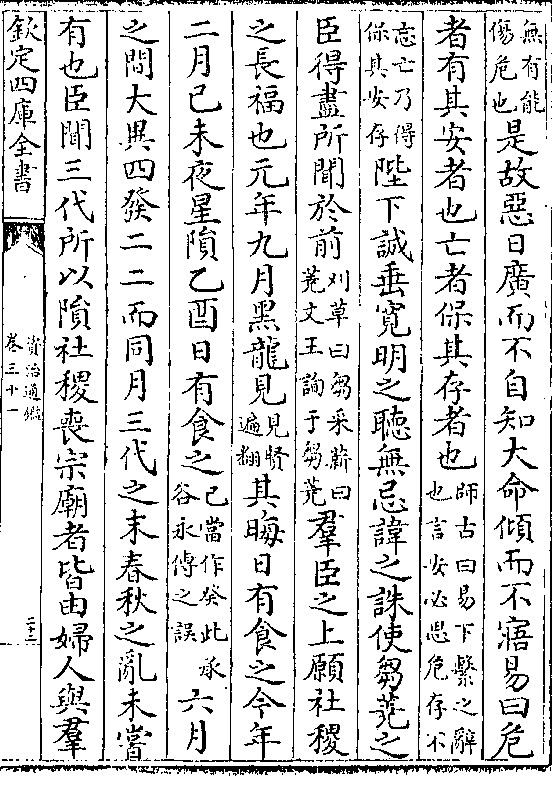 無有能傷危也是故惡日廣而不自知大命傾而不寤易曰危
者有其安者也亡者保其存者也師古曰易下繫之辭也言安必思危存不
忘亡乃得保其安存陛下誠垂寬明之聽無忌諱之誅使芻蕘之
臣得盡所聞於前刈草曰芻采薪曰蕘文王詢于芻蕘羣臣之上願社稷
之長福也元年九月黑龍見見賢遍翻其晦日有食之今年
二月己未夜星隕乙酉日有食之己當作癸此承谷永傳之誤六月
之間大異四發二二而同月三代之末春秋之亂未嘗
有也臣聞三代所以隕社稷喪宗廟者皆由婦人與羣
欽定四庫全書
資治通鑑
卷三十一
二十三